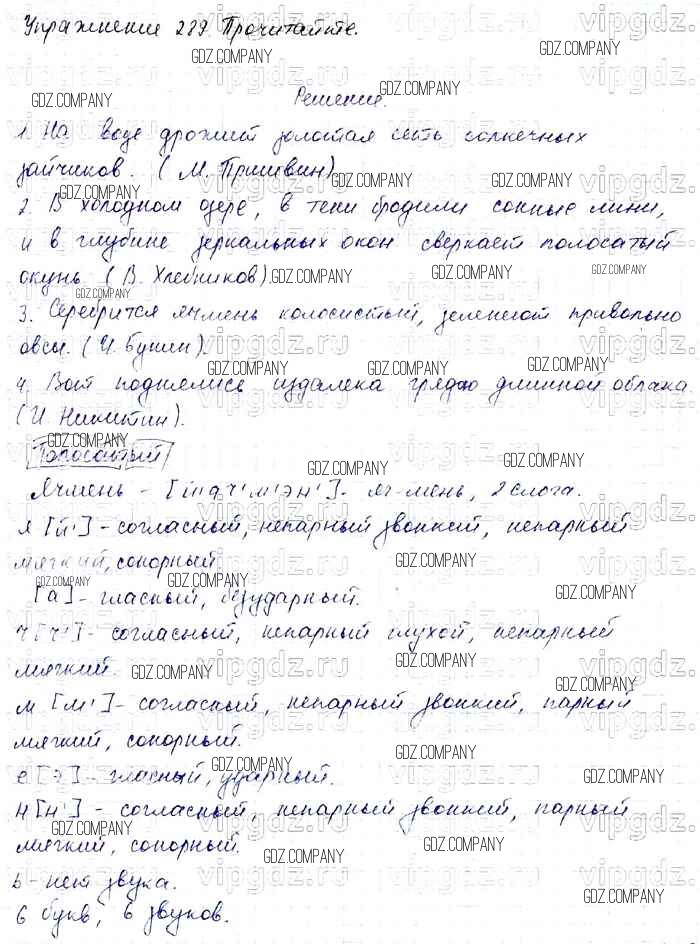 Упражнение 289. Прочитайте.
Решение.
1. На воде дрожит золотая сеть солнечных
зайчиков. (М. Пришвин)
2. В холодном озере, в тени бродили сонные лини,
и в глубине зеркальных окон сверкает полосатый
окунь. (В. Хлебников).
3. Серебрится ячмень колосистый, зеленеют привольно
овсы. (И. Бунин).
4. Вот поднялись издалека грядою длинной облака.
(И. Никитин).
Полосатый
Ячмень - [йач'м'эн'] - яч-мень, 2 слога.
я [й'] - согласный, непарный звонкий, непарный
мягкий, сонорный
[а] - гласный, безударный.
ч [ч'] - согласный, непарный глухой, непарный
мягкий.
м [м'] - согласный, непарный звонкий, парный
мягкий, сонорный.
е [э] - гласный, ударный.
н [н'] - согласный, непарный звонкий, парный
мягкий, сонорный.
ь - нет звука.
6 букв, 6 звуков.
GDZ.COMPANY
vipgdz.ru